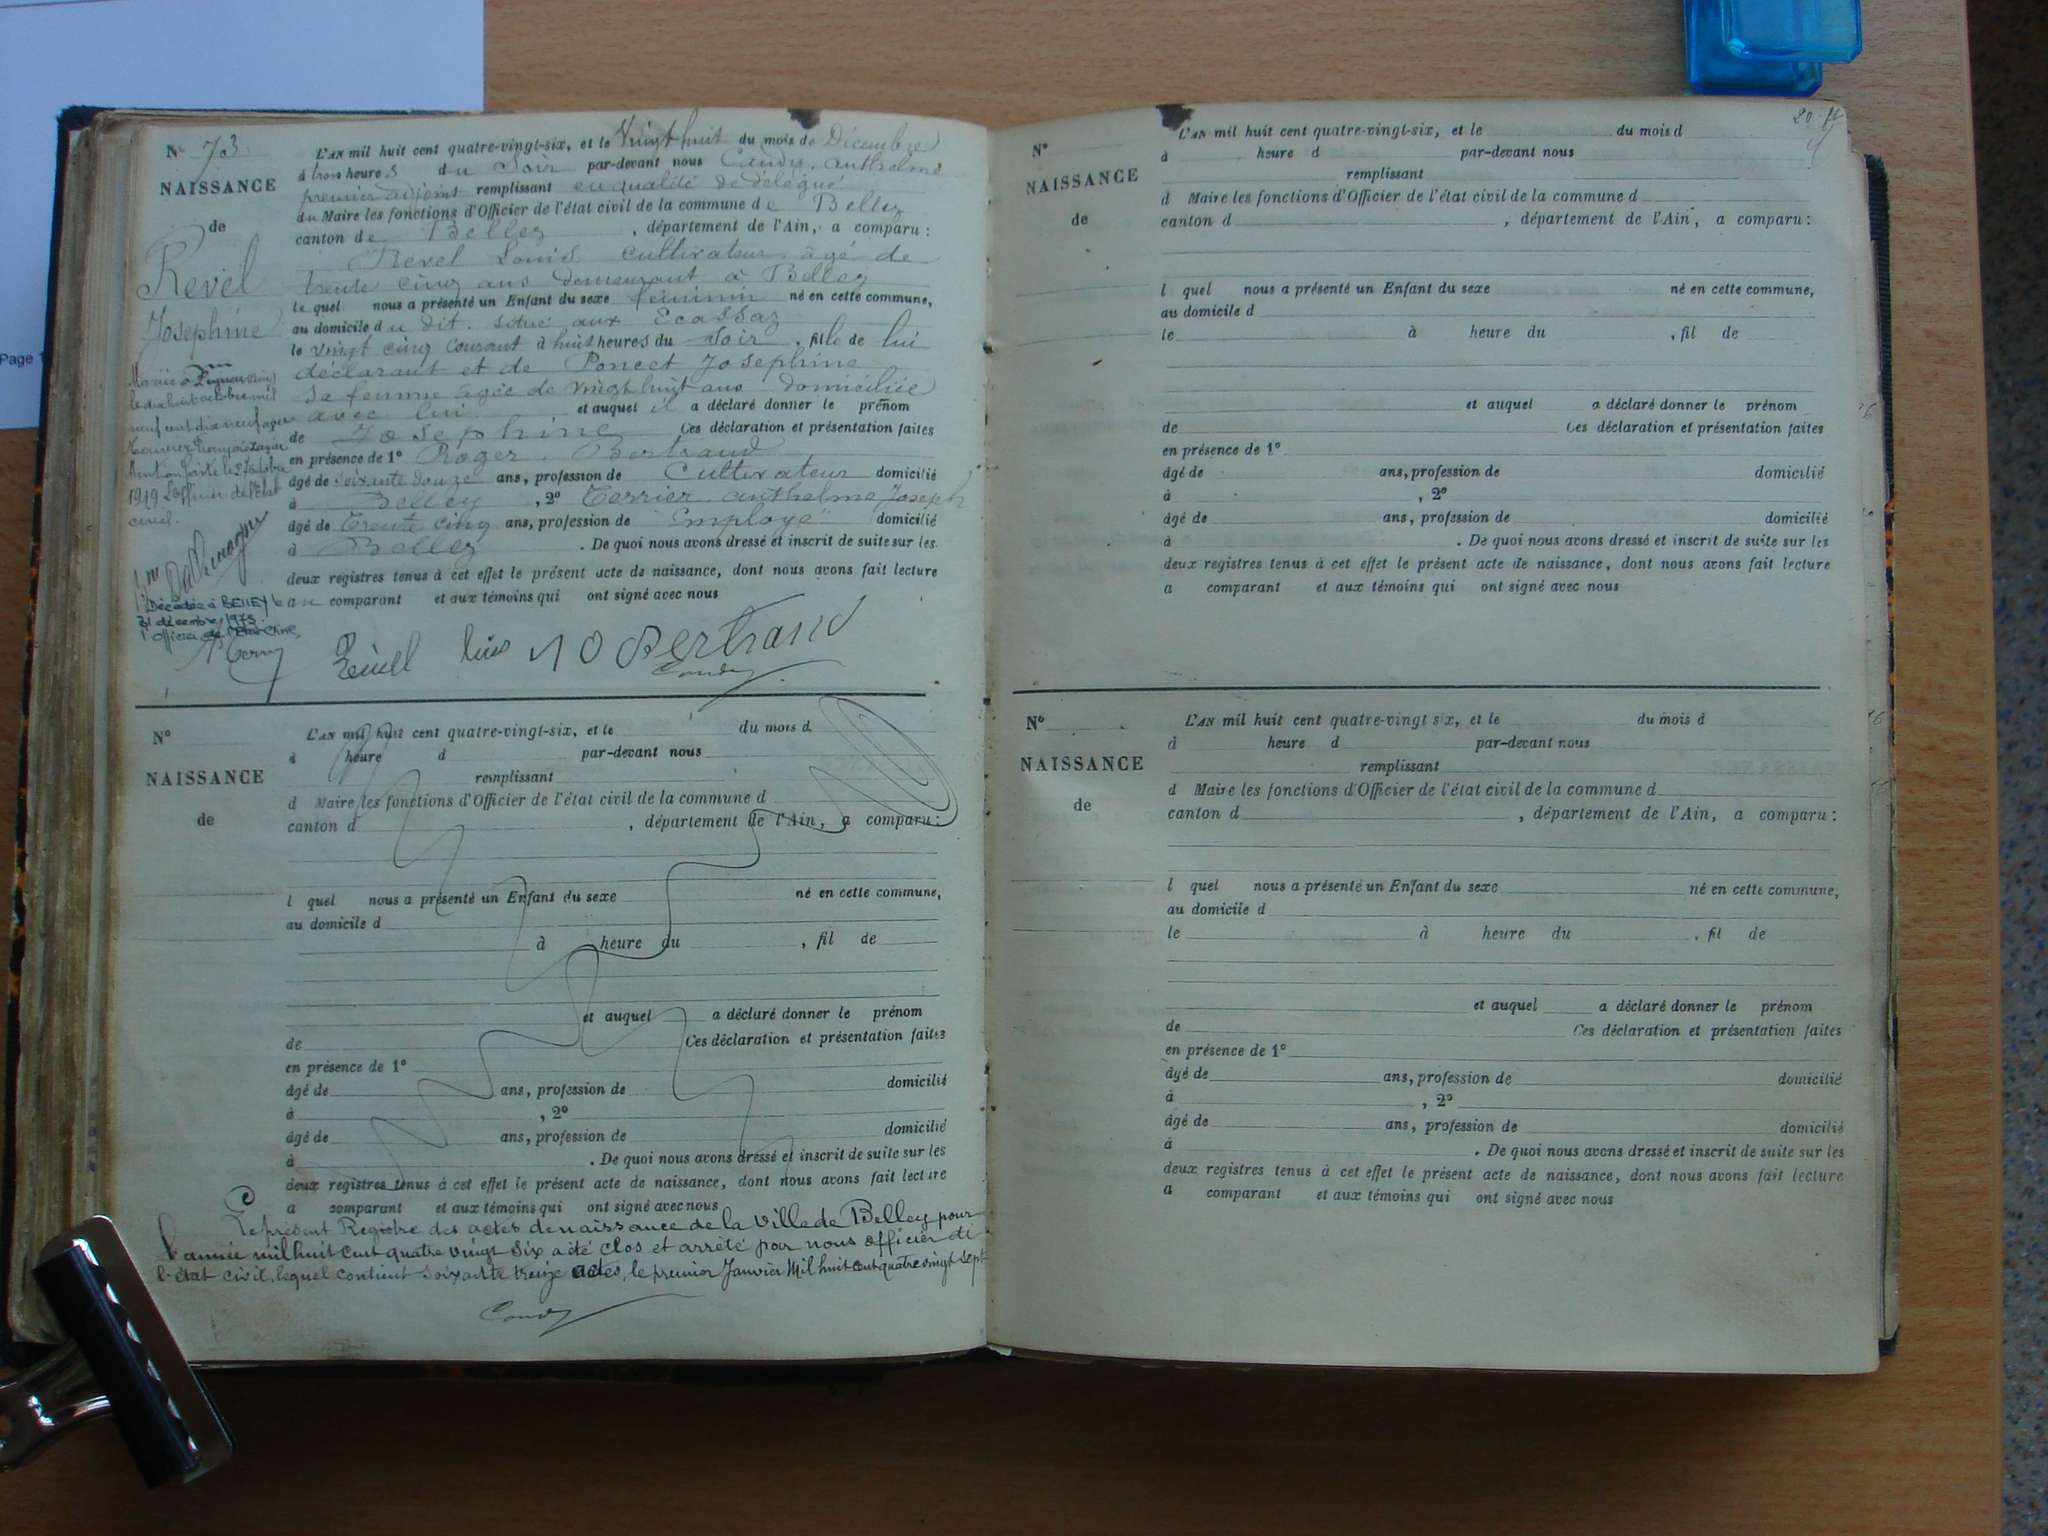 Page 1
N° 73
NAISSANCE
de
Revel
Josephine
Mariée à
le dix huit octobre mil
neuf cent dix neuf avec
Mention faite le 27 octobre
1919 L'officier de l'état
civil.
Décédée à BELLEY le
31 décembre 1975
l'Officier de l'Etat Civil,
L'AN mil huit cent quatre-vingt-six, et le Vingt huit du mois de Décembre
à trois heures du Soir par-devant nous Candy, anthelme
premier adjoint remplissant en qualité de délégué
du Maire les fonctions d'Officier de l'état civil de la commune de Belley
canton de Belley, département de l'Ain, a comparu :
Revel Louis cultivateur âgé de
trente cinq ans demeurant à Belley
lequel nous a présenté un Enfant du sexe féminin né en cette commune,
au domicile du dit, situé aux Ecassaz
le vingt cinq courant à huit heures du Soir, fille de lui
déclarant et de Poncet Josephine
sa femme âgée de vingt huit ans domiciliée
avec lui et auquel il a déclaré donner le prénom
de Josephine Ces déclaration et présentation faites
en présence de 1° Roger, Bertrand
âgé de soixante douze ans, profession de Cultivateur domicilié
à Belley, 2° Terrier anthelme Joseph
âgé de Trente cinq ans, profession de Employé domicilié
à Belley. De quoi nous avons dressé et inscrit de suite sur les
deux registres tenus à cet effet le présent acte de naissance, dont nous avons fait lecture
au comparant et aux témoins qui ont signé avec nous
Bertrand
Candy
N°
NAISSANCE
de
L'AN mil huit cent quatre-vingt-six, et le du mois d
à heure d par-devant nous
remplissant
d Maire les fonctions d'Officier de l'état civil de la commune d
canton d , département de l'Ain, a comparu :
l quel nous a présenté un Enfant du sexe né en cette commune,
au domicile d
à heure du , fil de
et auquel a déclaré donner le prénom
de Ces déclaration et présentation faites
en présence de 1°
âgé de ans, profession de domicilié
à , 2°
âgé de ans, profession de domicilié
à . De quoi nous avons dressé et inscrit de suite sur les
deux registres tenus à cet effet le présent acte de naissance, dont nous avons fait lecture
a comparant et aux témoins qui ont signé avec nous
Le présent Registre des actes de naissance de la Ville de Belley pour
l'année mil huit cent quatre vingt six a été clos et arrêté par nous officier de
l'état civil, lequel contient soixante treize actes, le premier Janvier Mil huit cent quatre vingt sept
Candy
N°
NAISSANCE
de
L'AN mil huit cent quatre-vingt-six, et le du mois d
à heure d par-devant nous
remplissant
d Maire les fonctions d'Officier de l'état civil de la commune d
canton d , département de l'Ain, a comparu :
l quel nous a présenté un Enfant du sexe né en cette commune,
au domicile d
le à heure du , fil de
et auquel a déclaré donner le prénom
de Ces déclaration et présentation faites
en présence de 1°
âgé de ans, profession de domicilié
à , 2°
âgé de ans, profession de domicilié
à . De quoi nous avons dressé et inscrit de suite sur les
deux registres tenus à cet effet le présent acte de naissance, dont nous avons fait lecture
a comparant et aux témoins qui ont signé avec nous
N°
NAISSANCE
de
L'AN mil huit cent quatre-vingt six, et le du mois d
à heure d par-devant nous
remplissant
d Maire les fonctions d'Officier de l'état civil de la commune d
canton d , département de l'Ain, a comparu :
l quel nous a présenté un Enfant du sexe né en cette commune,
au domicile d
le à heure du , fil de
et auquel a déclaré donner le prénom
de Ces déclaration et présentation faites
en présence de 1°
âgé de ans, profession de domicilié
à , 2°
âgé de ans, profession de domicilié
à . De quoi nous avons dressé et inscrit de suite sur les
deux registres tenus à cet effet le présent acte de naissance, dont nous avons fait lecture
a comparant et aux témoins qui ont signé avec nous